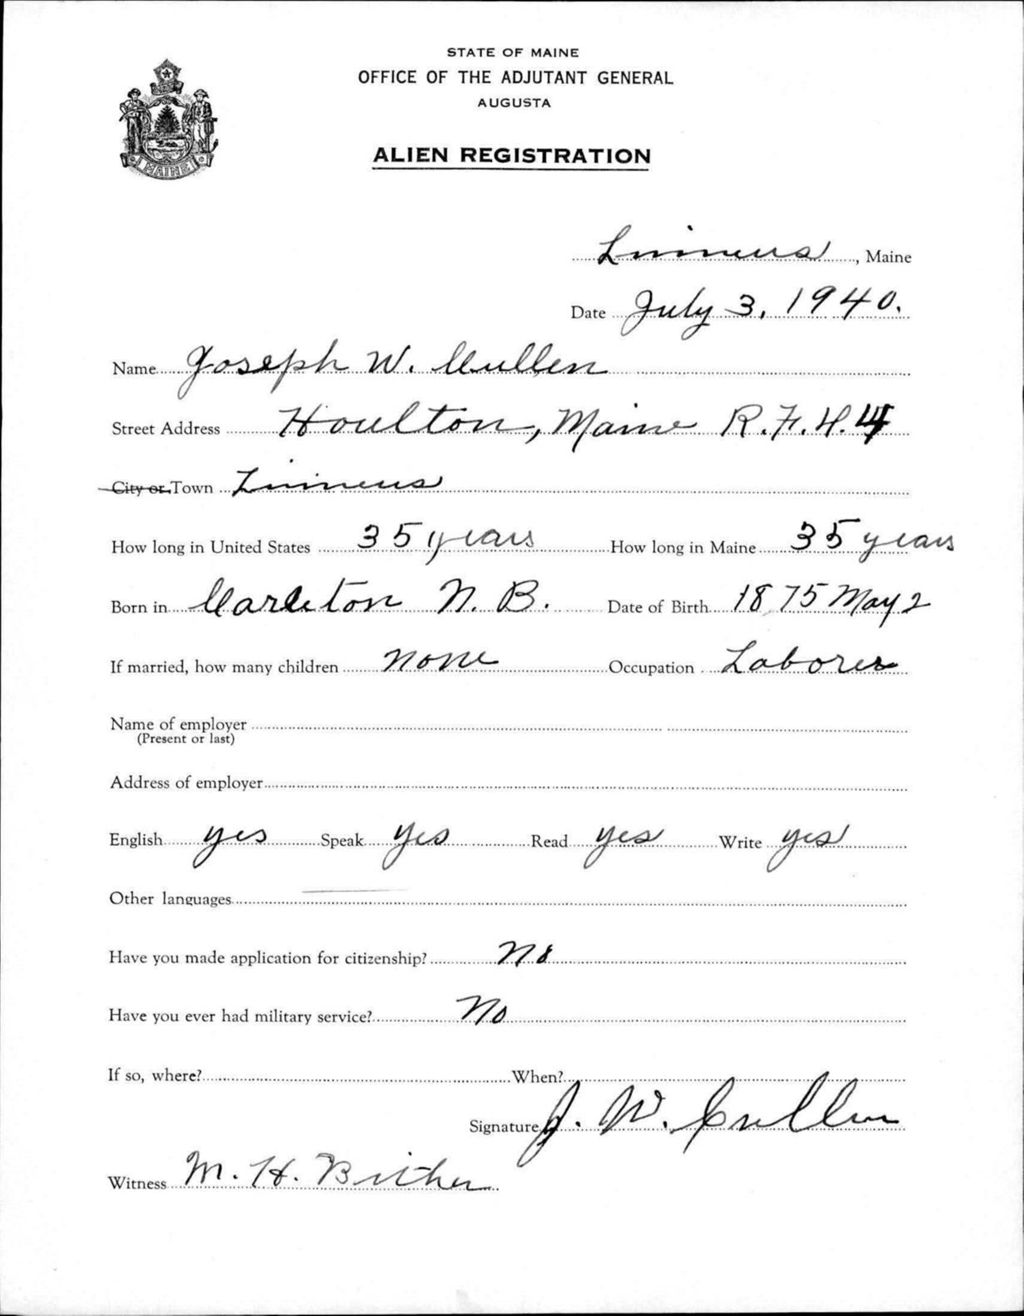 STATE OF MAINE
OFFICE OF THE ADJUTANT GENERAL
AUGUSTA
ALIEN REGISTRATION
MAINE
Linneus, Maine
Date July 3, 1940.
Name Joseph W. Cullen
Street Address Houlton, Maine R.F.D. 4
City or Town Linneus
How long in United States 35 years How long in Maine 35 years
Born in Carleton N. B. Date of Birth 1875 May 2
If married, how many children none Occupation Laborer
Name of employer
(Present or last)
Address of employer
English yes Speak yes Read yes Write yes
Other languages
Have you made application for citizenship? No
Have you ever had military service? No
If so, where? When?
Signature J. W. Cullen
Witness M. H. Bither